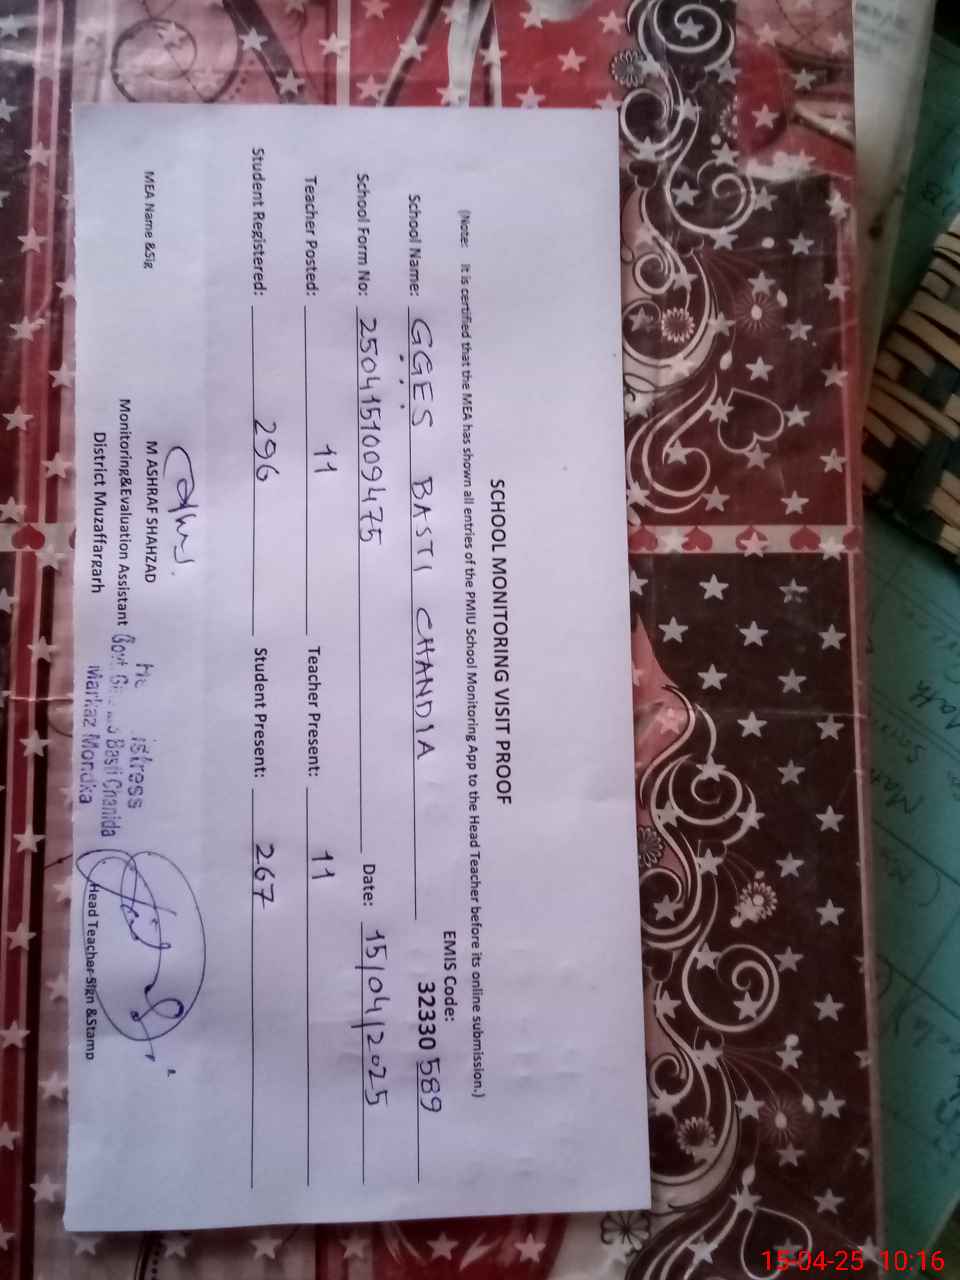 SCHOOL MONITORING VISIT PROOF
(Note: It is certified that the MEA has shown all entries of the PMIU School Monitoring App to the Head Teacher before its online submission.)
EMIS Code:
School Name: GGES BASTI CHANDIA 32330589
School Form No: 2504151009475 Date: 15/04/2025
Teacher Posted: 11 Teacher Present: 11
Student Registered: 296 Student Present: 267
MEA Name &Sig
M ASHRAF SHAHZAD
Monitoring&Evaluation Assistant
District Muzaffargarh
Govt. Basti Chanida
Markaz Mondka
Head Teacher Sign &Stamp
15-04-25 10:16